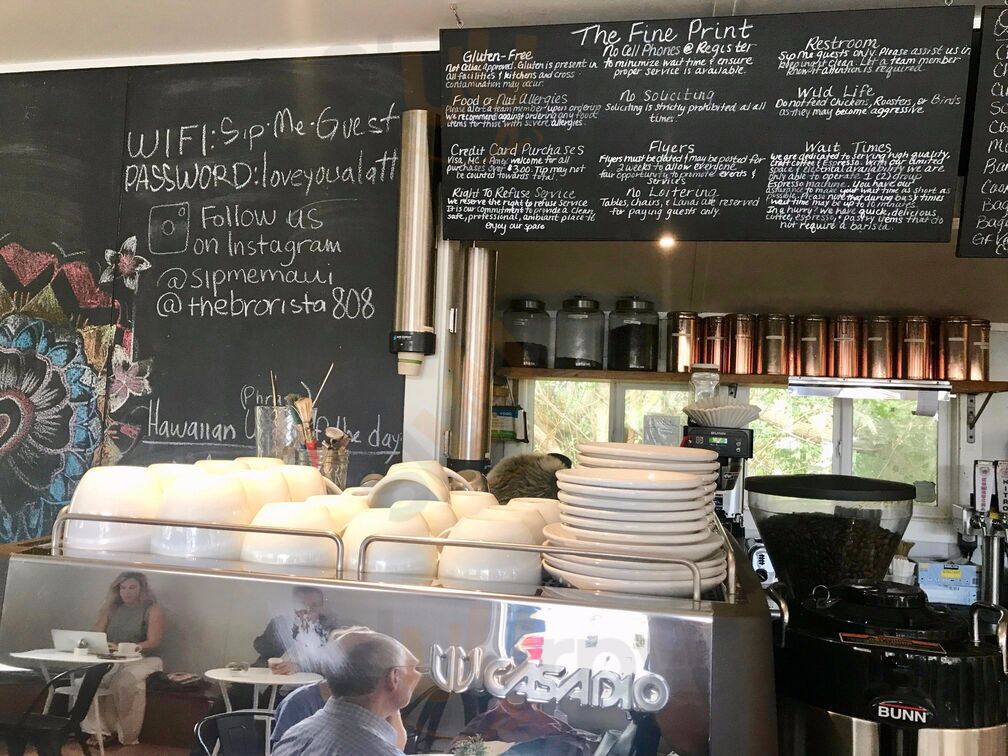 WIFI: Sip·Me·Guest
PASSWORD: loveyoualatt
Follow us
on Instagram
@sipmemaui
@thebrorista808
(Phra
Hawaiian
the day
The Fine Print
Gluten-Free
Not Celiac approved. Gluten is present in
all facilities & kitchens and cross
contamination may occur.
Food or Nut Allergies
Please alert a team member upon ordering
We recommend against ordering any food
items for those with severe allergies.
Credit Card Purchases
Visa, MC & Amex welcome for all
purchases over $3.00. Tip may not
be counted towards total.
Right To Refuse Service
We reserve the right to refuse service
It is our commitment to provide a clean,
safe, professional, ambient place to
enjoy our space
No Cell Phones @ Register
to minimize wait time & ensure
proper service is available.
No Soliciting
Soliciting is strictly prohibited at all
times.
Flyers
Flyers must be dated & may be posted for
2 weeks to allow everyone
fair opportunity to promote events &
services
No Loitering
Tables, Chairs, & Lanai are reserved
for paying guests only.
Restroom
Sip Me guests only. Please assist us in
keeping it clean. Let a team member
know if attention is required.
Wild Life
Do not feed Chickens, Roosters, or Birds
as they may become aggressive.
Wait Times
We are dedicated to serving high quality,
craft coffee & espresso. With our limited
space & electrical availability we are
only able to operate 1 (2) group
Espresso machine. You have our
assurance to make your wait time as short as
possible. Please note that during busy times
wait time may be up to 10 minutes.
In a hurry? We have quick, delicious
coffee, espresso, & pastry items that do
not require a barista.
BUNN
CASADIO
BUNN